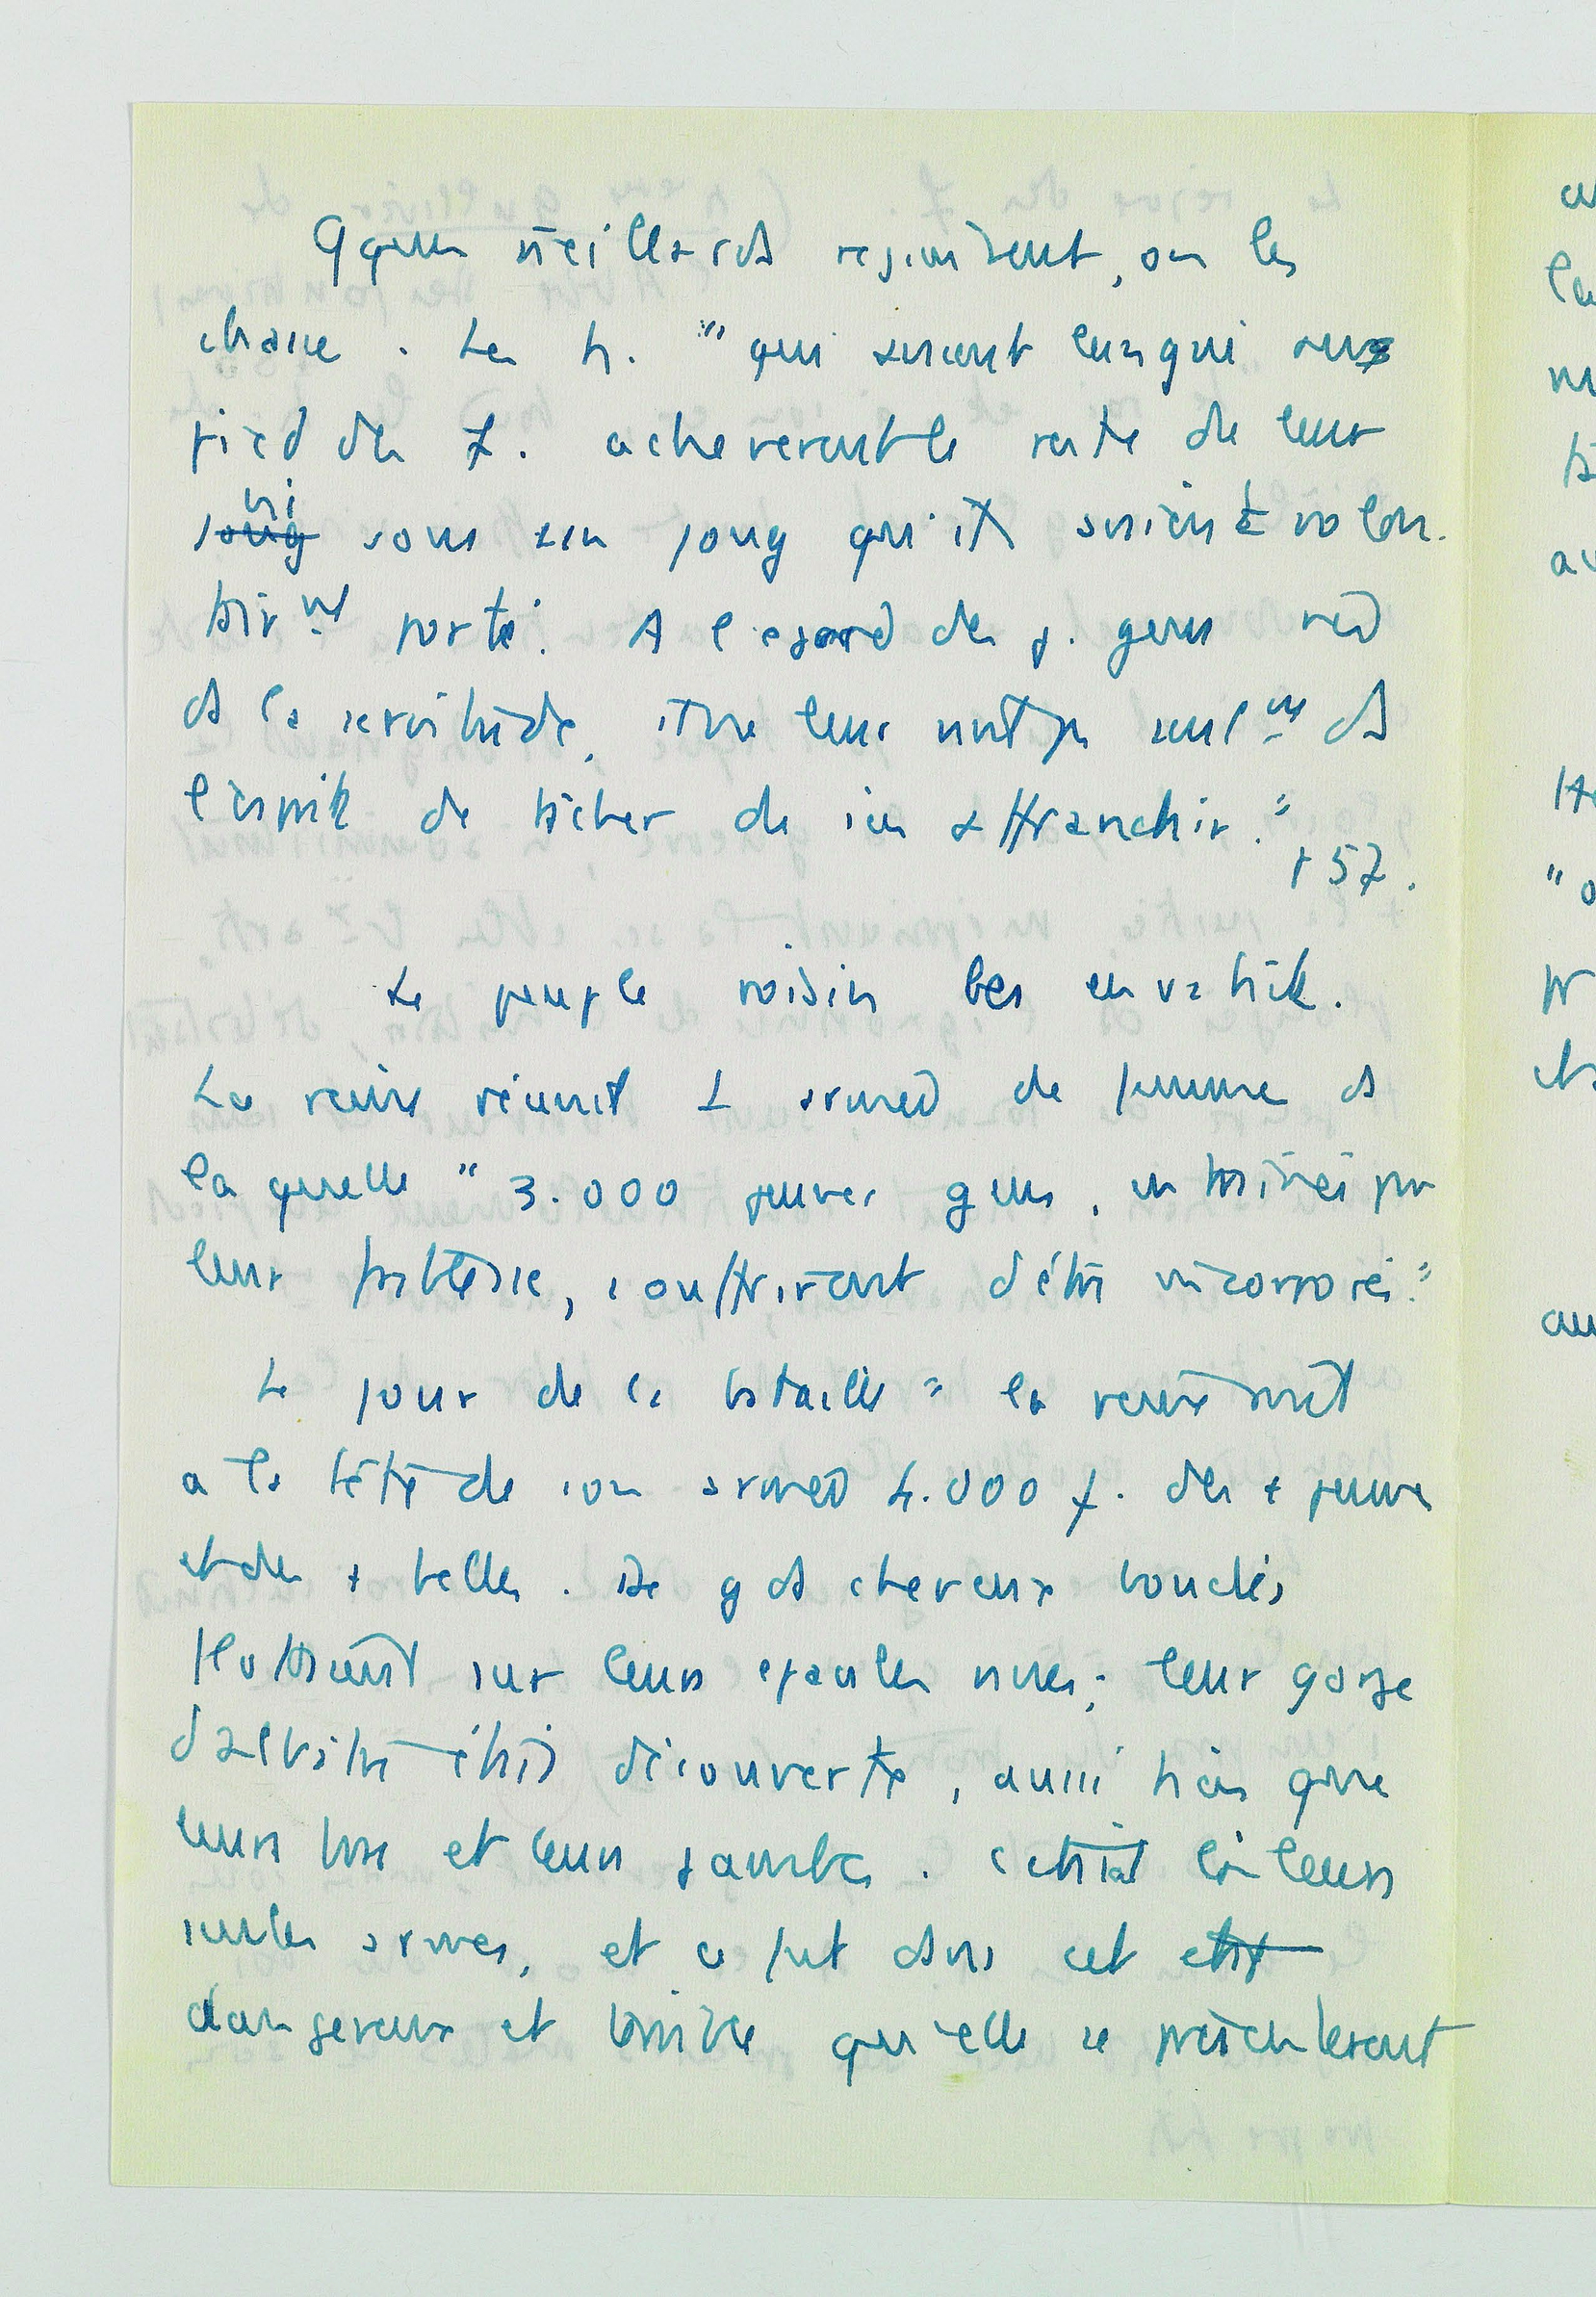 Qques vieillards rejimbent, on les
chasse. Les h. "qui avaient langui aux
pied des f. acheverent le reste de leur
vi
joug sous un joug qu'ils avaient volon-
tair^nt porté. A l'egard des j. gens nés
ds la servitude, il ne leur vint pas seul^nt ds
l'esprit de tâcher de s'en affranchir."
p 57.
Le peuple voisin les envahit.
La reine réunit 1 armée de femmes ds
laquelle "3.000 jeunes gens, entrainés par
leur faiblesse, souffrirent d'être incorporés."
Le jour de la bataille "la reine mit
a la tête de son armée 4.000 f. des + jeunes
et des + belles. De gds cheveux bouclés
flottaient sur leurs epaules nues; leur gorge
d'albâtre était découverte, aussi bien que
leurs bras et leurs jambes. C'était là leurs
seules armes, et ce fut dans cet etat
dangereux et terrible qu'elles se présenterent